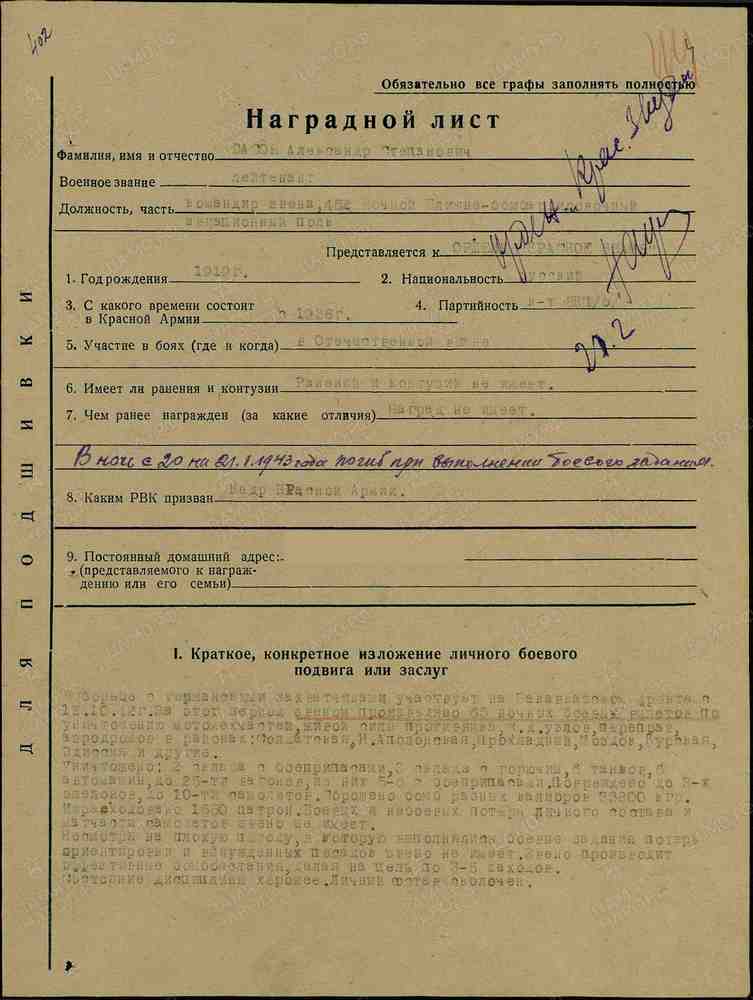 402
Обязательно все графы заполнять полностью
Наградной лист
орден Крас. Звезды
28.2
Фамилия, имя и отчество Александр Степанович
Военное звание лейтенант
Должность, часть командир звена, ночной ближне-бомбардировочный
авиационный Полк
Представляется к КРАСНОЕ
1. Год рождения 1919г. 2. Национальность русский
3. С какого времени состоит
в Красной Армии с 1936г. 4. Партийность
5. Участие в боях (где и когда) в Отечественной войне
6. Имеет ли ранения и контузии Ранений и контузий не имеет.
7. Чем ранее награжден (за какие отличия) Наград не имеет.
В ночь с 20 на 21.1.1943 года погиб при выполнении боевого задания.
8. Каким РВК призван Кадр Красной Армии.
9. Постоянный домашний адрес:
(представляемого к награж-
дению или его семьи)
ДЛЯ ПОДШИВКИ
I. Краткое, конкретное изложение личного боевого
подвига или заслуг
В борьбе с германскими захватчиками участвует на Закавказском фронте с
За этот период звеном произведено 65 ночных боевых вылетов по
уничтожению мотомехчастей, живой силы противника, ж.д.узлов, переправ,
аэродромов в районах: Солдатская, Н.Аполонская, Прохладная, Моздок, Суровая,
Эдиссия и другие.
Уничтожено: 2 склада с боеприпасами, 3 склада с горючим, танков,
автомашин, до 25-ти вагонов, из них с боеприпасами. Повреждено до 3-х
эшелонов, до 10-ти самолетов. Сброшено бомб разных калибров кгр.
Израсходовано патрон. Боевых и небоевых потерь личного состава и
матчасти самолетов звено не имеет.
Несмотря на плохую погоду, в которую выполнялись боевые задания потерь
ориентировки и вынужденных посадок звено не имеет. Звено производит
эффективные бомбометания, делая на цель по 3-5 заходов.
Состояние дисциплины хорошее. Личный состав сколочен.